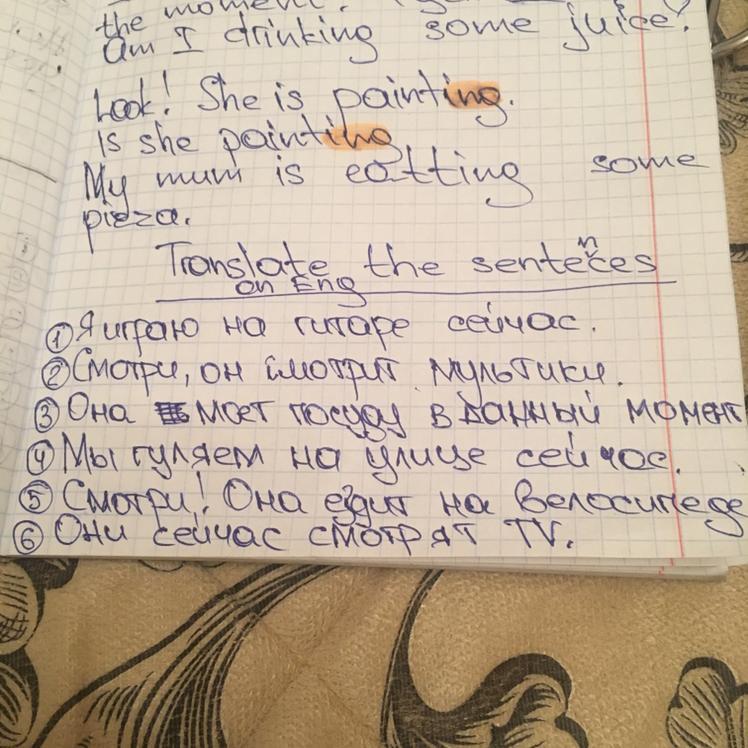 the moment.
Am I drinking some juice?
Look! She is painting.
Is she painting
My mum is eatting some
pizza.
Translate the sentences
on Eng
① Я играю на гитаре сейчас.
② Смотри, он смотрит мультики.
③ Она моет посуду в данный момент
④ Мы гуляем на улице сейчас.
⑤ Смотри! Она ездит на велосипеде
⑥ Они сейчас смотрят TV.